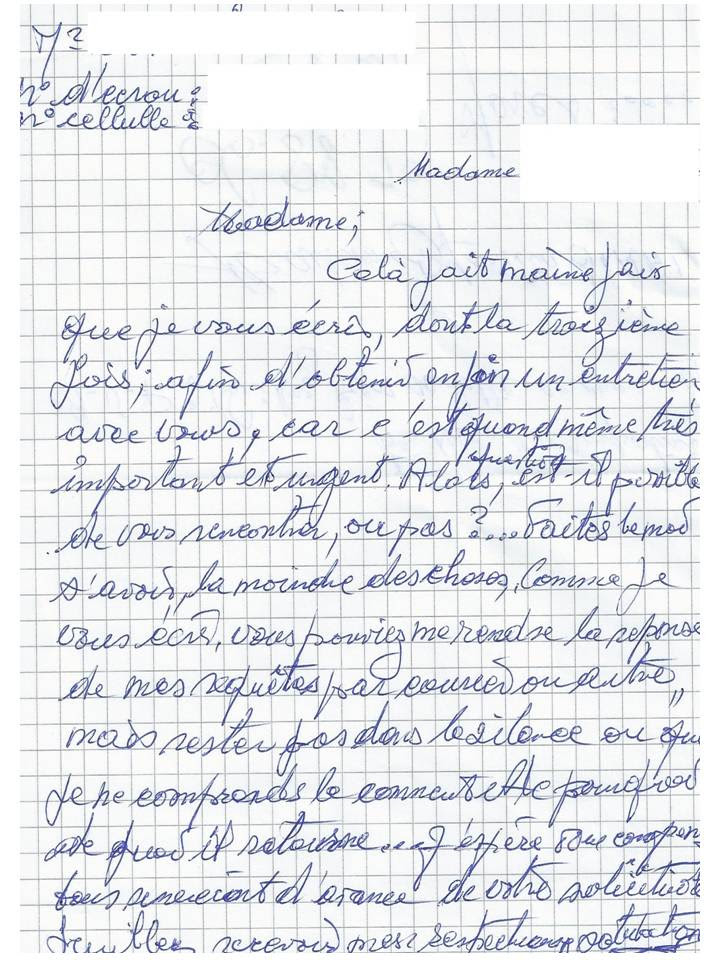 Mr
n° d'écrou :
n° cellulle :
Madame
Madame;
Celà fait mainte fois
que je vous écris, dont la troizième
fois; afin d'obtenir enfin un entretien
avec vous, car c'est quand même très
important et urgent. Alors, est-il possible
de vous rencontrer, ou pas ?... Faites le moi
s'avoir, la moindre des choses. Comme je
vous écris, vous pouviez me rendre la reponse
de mes requêtes par courrier ou autre,,
mais rester pas dans le silence ou que
je ne comprends le comment et le pourquoi
de quoi il retourne.... J'espère
vous remerciant d'avance de votre
recevoir mes